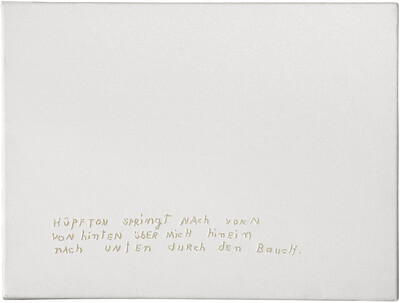 HÜPFTON SPRingt NACH VORN
VON hinten ÜBER Mich hinein
nach UNTEN durch den Bauch.